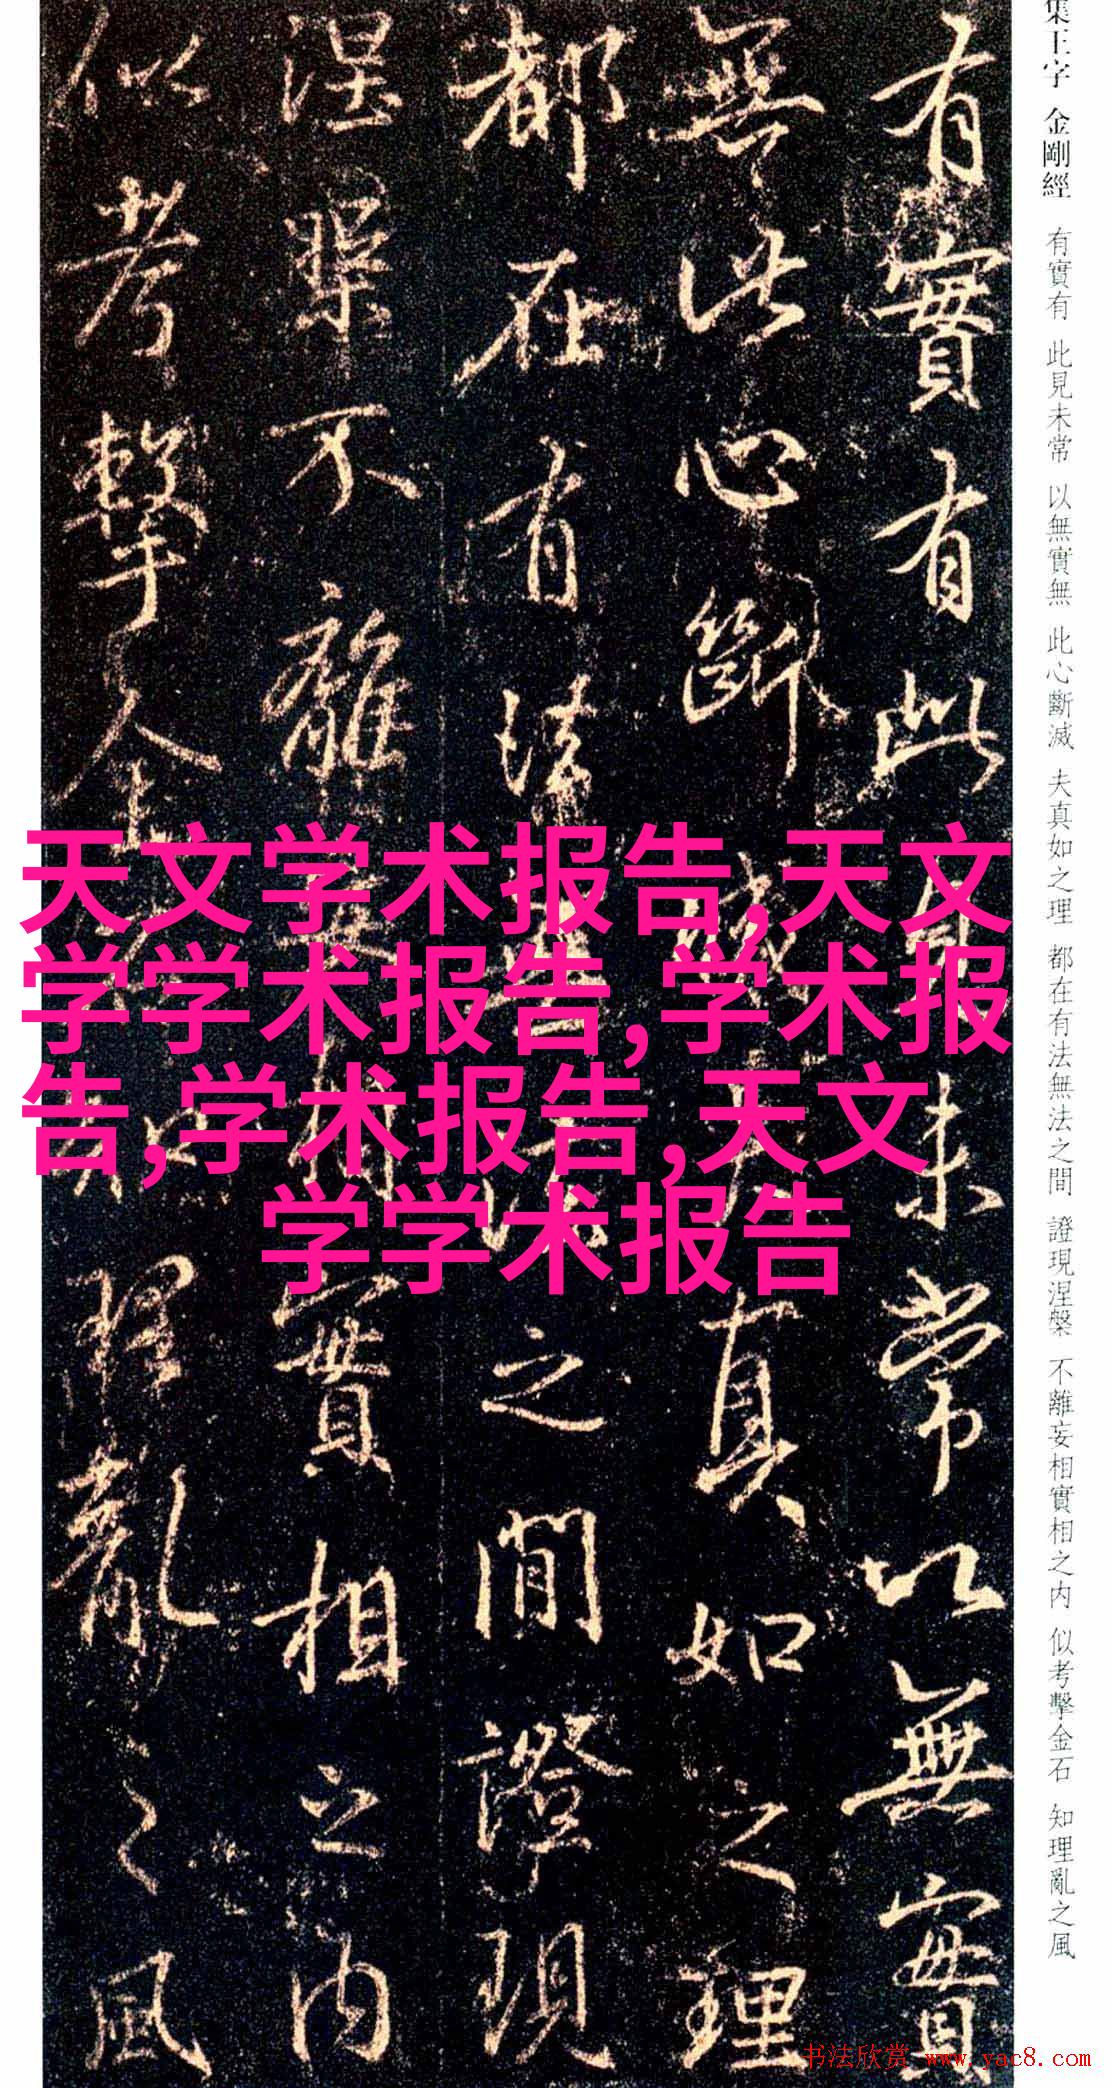 集王字 金剛經 有實有 此見未常 以無實無 此心斷滅 夫真如之理 都在有法無法之間 證現涅槃 不離妄相實相之內 似考擊金石 知理亂之風
有實有此見未常以無實
無此心斷滅夫真如之理
都在有法無法之間證現
涅槃不離妄相實相之內
似考擊金石知理亂之風
天文学术报告,天文
学学术报告,学术报
告,学术报告,天文
学学术报告
书法欣赏 www.yac8.com